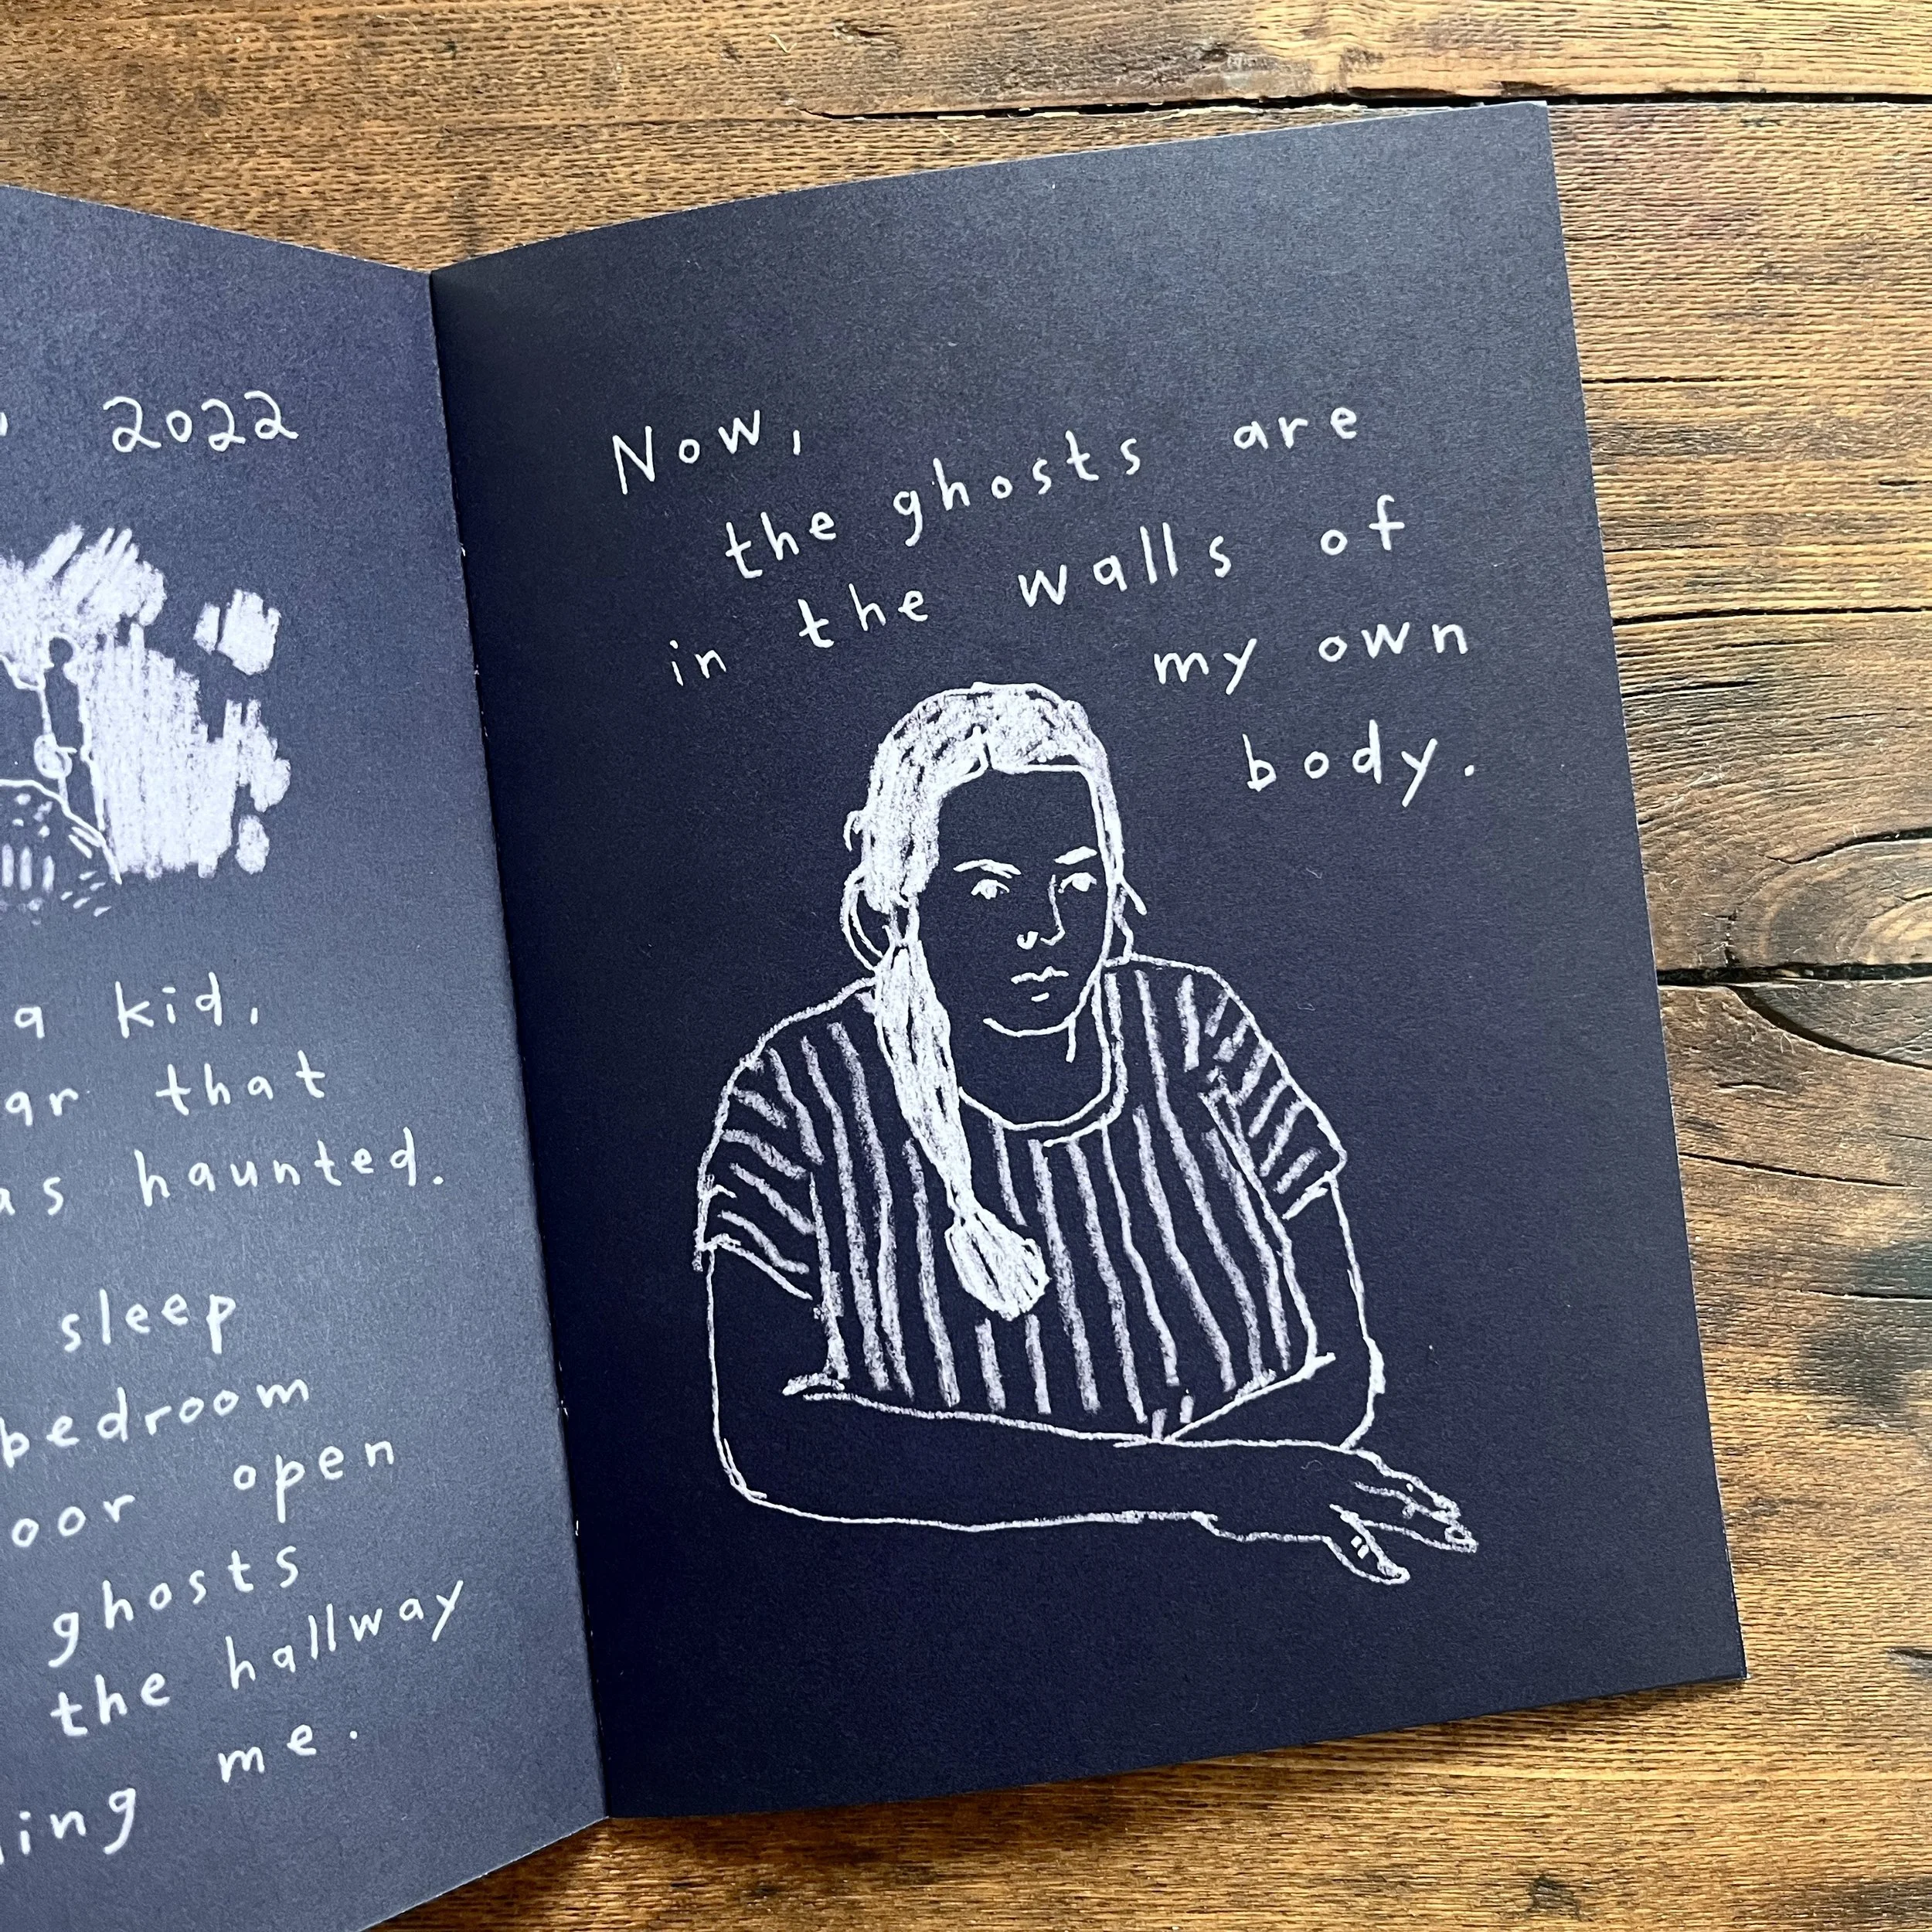 2022
a kid,
that
haunted.
sleep
bedroom
open
ghosts
the hallway
me.
Now,
the ghosts are
in the walls of
my own
body.